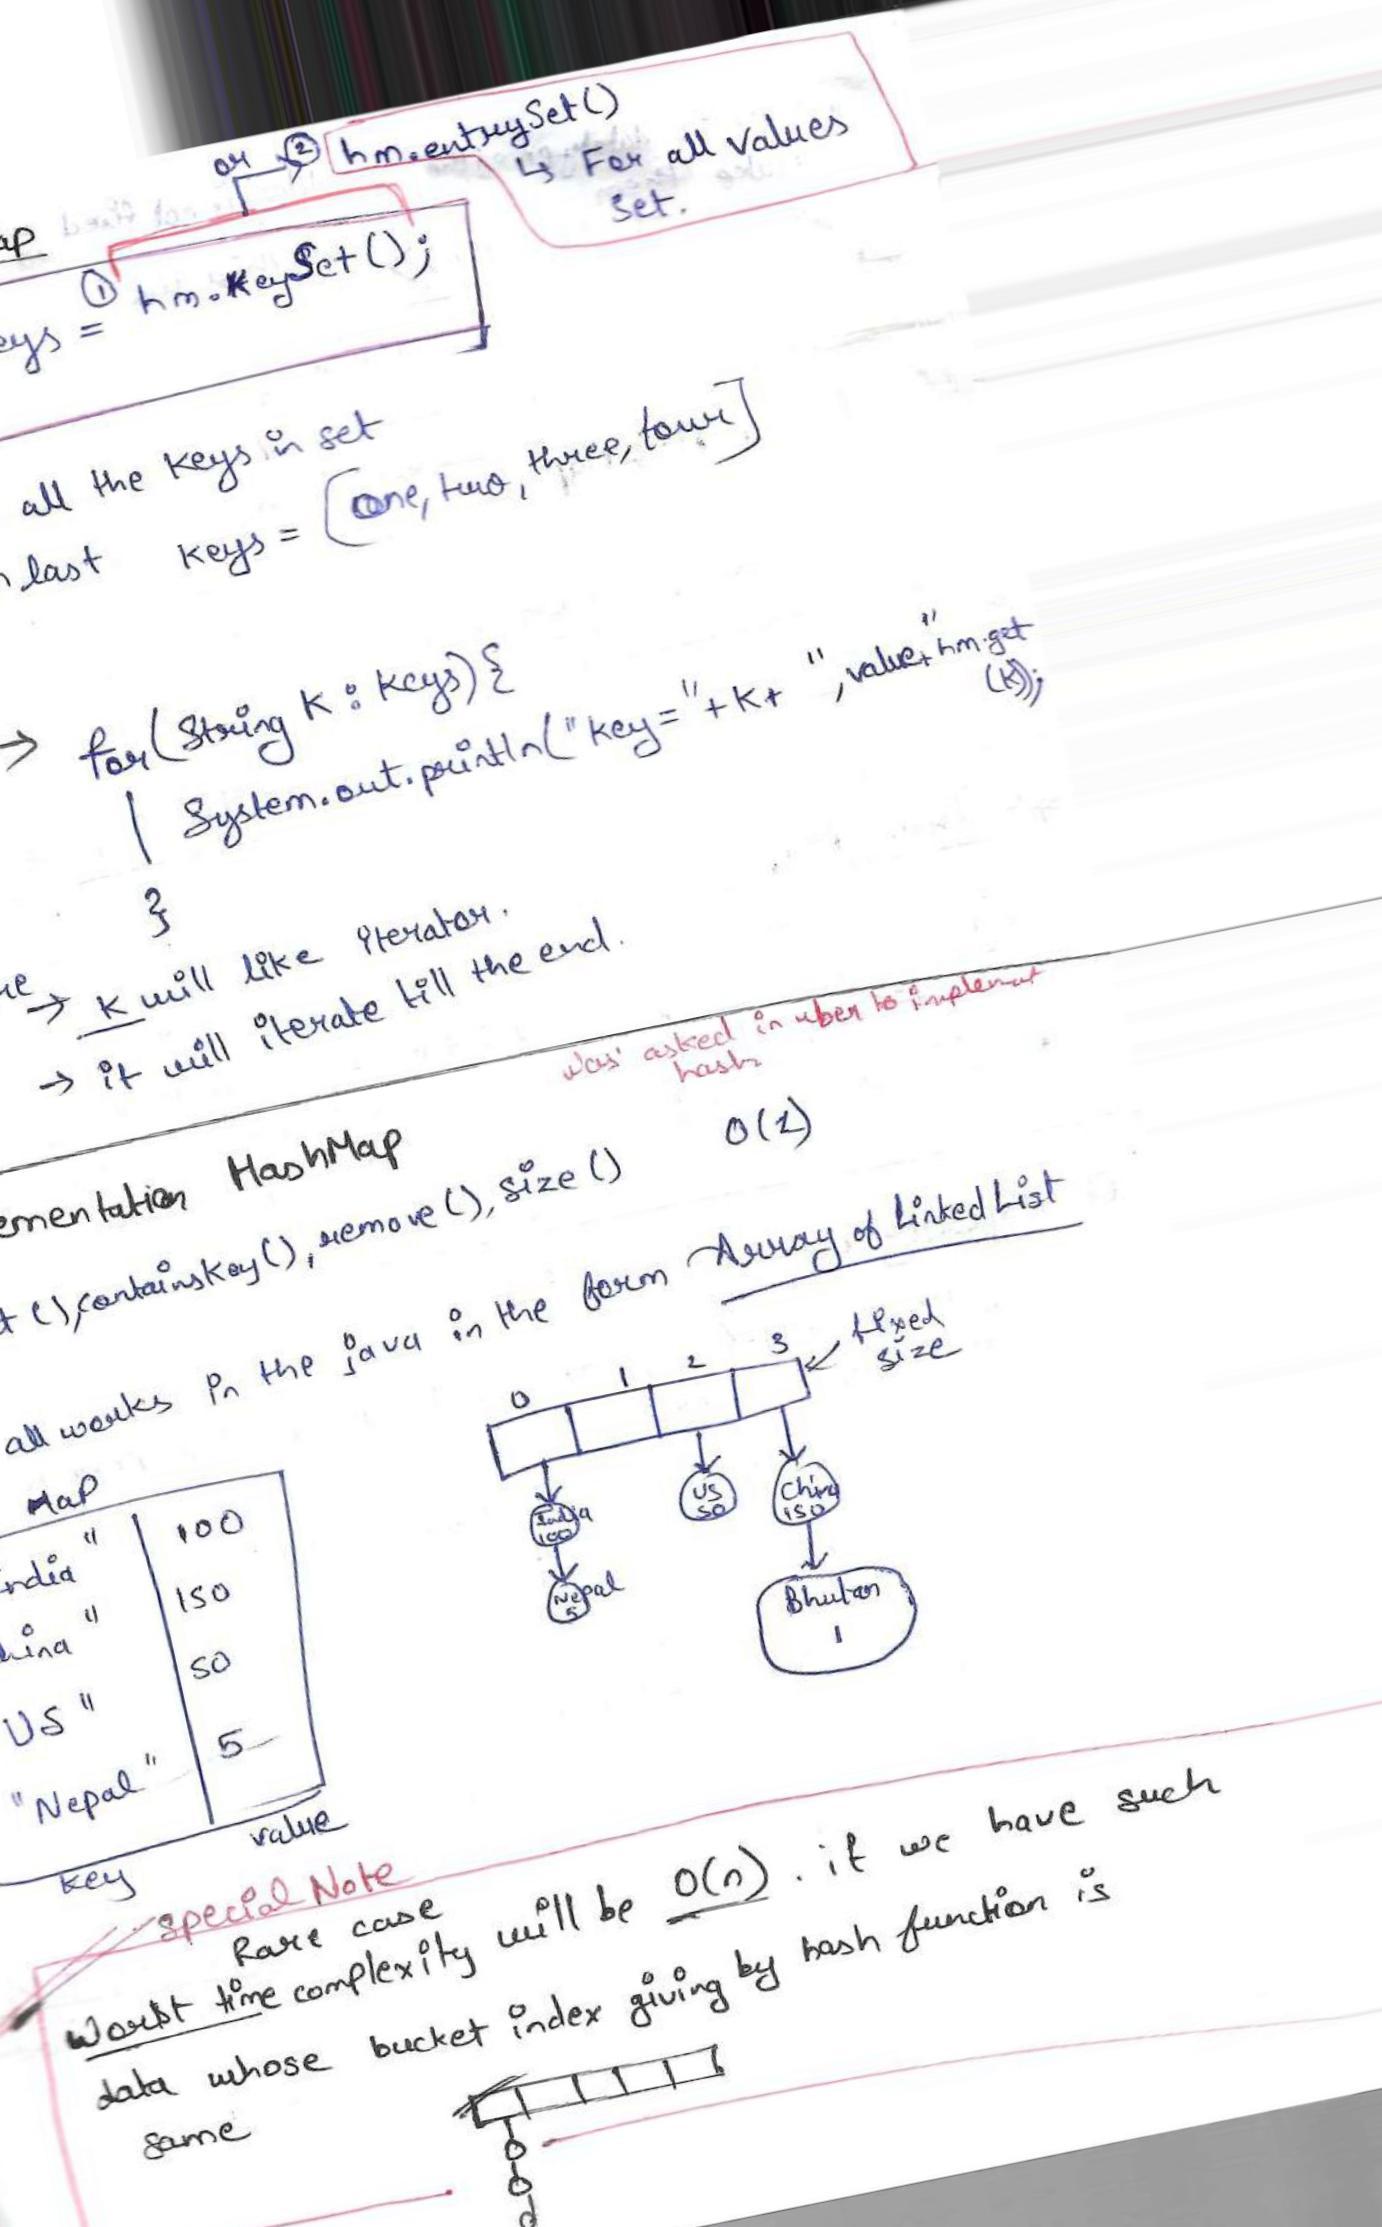 or → ② hm.entrySet()
↳ For all values
set.
ap
eys = ① hm.keySet();
all the keys in set
n last keys = [one, two, three, four]
→ for(String k : keys) {
System.out.println("key="+k+ ", value+" hm.get
(k));
}
→ k will like iterator.
→ it will iterate till the end.
Was asked in uber to implement
hash
ementation HashMap
t(), containsKey(), remove(), size() O(1)
all works in the java in the form Array of Linked List
0 1 2 3 ← fixed
size
India
100
US
50
China
150
Nepal
5
Bhutan
1
Map
India" 100
hina" 150
US" 50
"Nepal" 5
key value
special Note
Rare case
Worst time complexity will be O(n). if we have such
data whose bucket index giving by hash function is
same